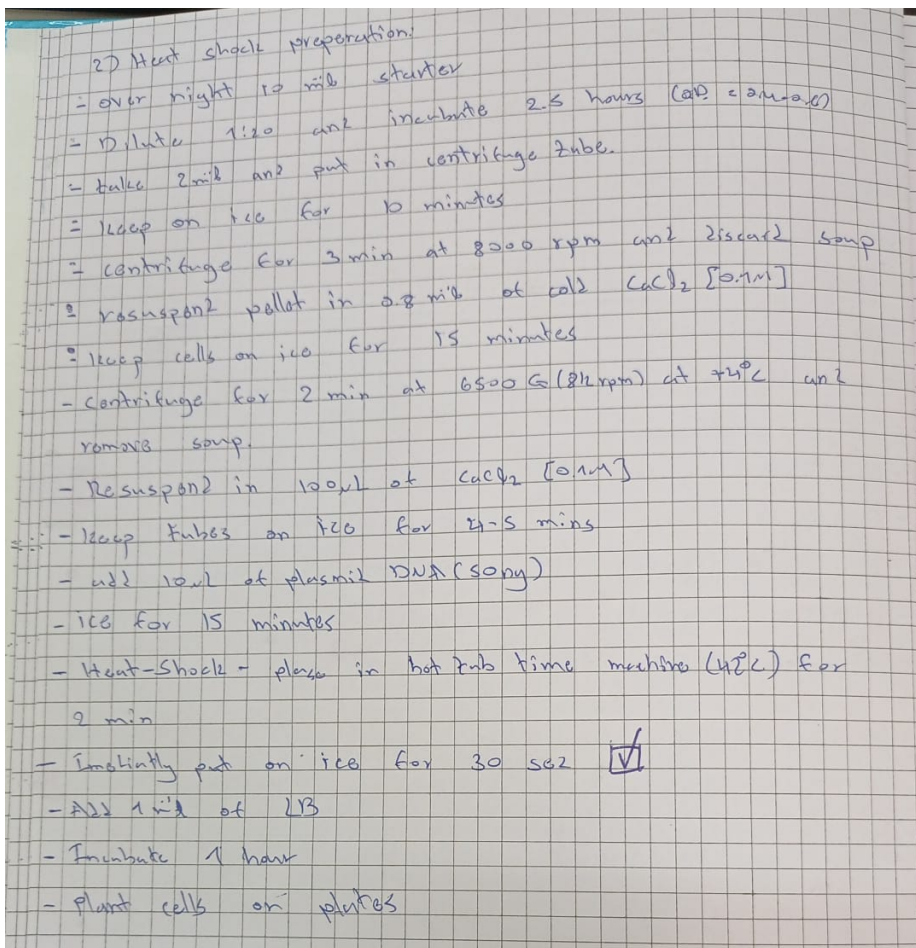 2) Heat shock preperation:
- over night 10 ml starter
- Dilute 1:20 and incubate 2.5 hours (OD
- take 2 ml and put in centrifuge tube.
- keep on ice for 10 minutes
- centrifuge for 3 min at 8000 rpm and discard soup
- resuspend pellet in 0.8 ml of cold CaCl2 [0.1M]
- keep cells on ice for 15 minutes
- centrifuge for 2 min at 6500 G (8k rpm) at +4°C and
remove soup.
- Resuspend in 100 µL of CaCl2 [0.1M]
- keep tubes on ice for 4-5 mins
- add 10 µl of plasmid DNA (50ng)
- ice for 15 minutes
- Heat-Shock - place in hot tub time machine (42°C) for
2 min
- Instintly put on ice for 30 sec ☑
- Add 1 ml of LB
- Incubate 1 hour
- Plant cells on plates